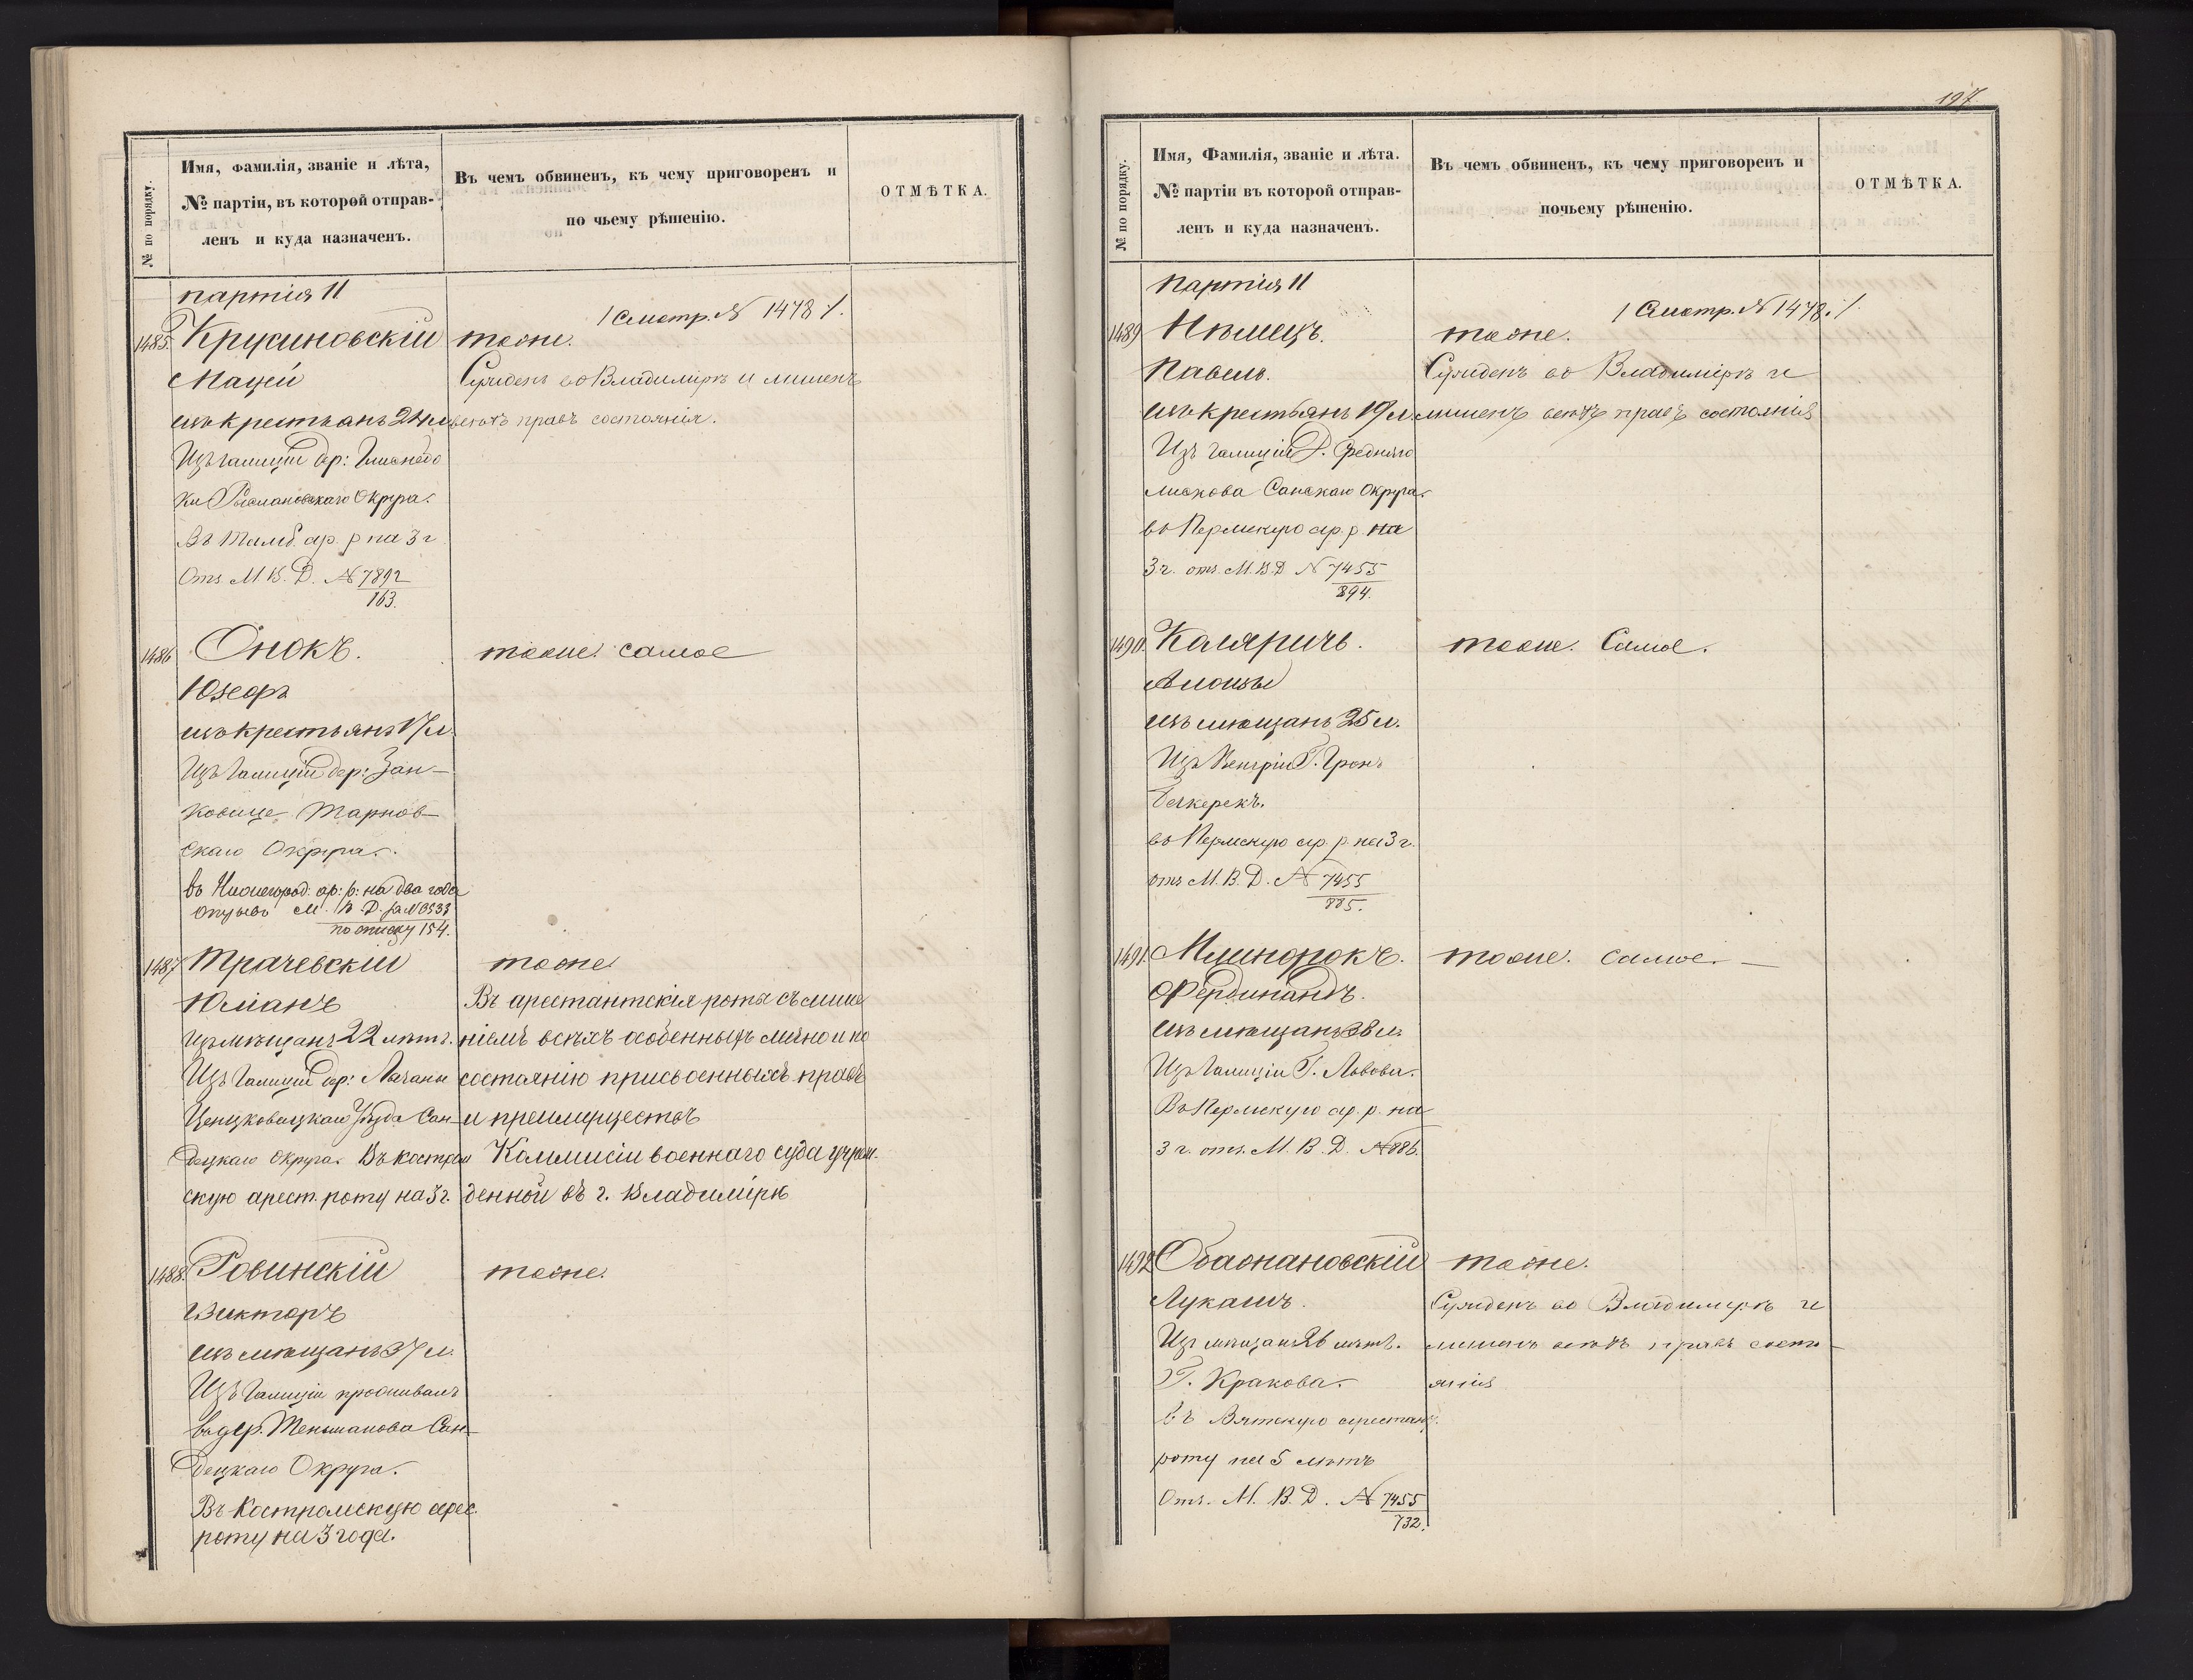 № по порядку.
Имя, фамилія, званіе и лѣта,
№ партіи, въ которой отправ-
ленъ и куда назначенъ.
Въ чемъ обвиненъ, къ чему приговоренъ и
по чьему рѣшенію.
ОТМѢТКА.
партія 11
/Смотр. № 1478./.
1485. Крушиновскій тоже.
Мацей Сужденъ во Владимірѣ и лишенъ
изъ крестьянъ 24 л всѣхъ правъ состоянія.
Изъ Галиціи дер:
Округа.
Въ Тамб. ар. р на 3 г
Отъ М. В. Д. № 7892
163.
1486 Снокъ. тоже самое
Юзефъ
изъ крестьянъ 17 л.
Изъ Галиціи дер: Зан-
ковице Тарнов-
скаго Округа.
въ Нижегород: ар: р: на два года
отзывъ М. В. Д. за № 6533
по списку 154.
1487 Трачевскій тоже
Юліанъ Въ арестантскія роты съ лише
изъ мѣщанъ 22 лѣтъ. ніемъ всѣхъ особенныхъ лично и по
Изъ Галиціи дер: состоянію присвоенныхъ правъ
Уѣзда Сан- и преимуществъ
децкаго Округа. Въ костром Коммисіи военнаго суда учреж-
скую арест. роту на 3 г. денной въ г. Владимірѣ
1488. Ровинскій тоже.
Викторъ
изъ мѣщанъ 37 л.
Изъ Галиціи проживалъ
въ дер. Сан-
децкаго Округа.
Въ Костромскую арес.
роту на 3 года.
197
№ по порядку.
Имя, Фамилія, званіе и лѣта.
№ партіи въ которой отправ-
ленъ и куда назначенъ.
Въ чемъ обвиненъ, къ чему приговоренъ и
почьему рѣшенію.
ОТМѢТКА.
Партія 11
/Смотр. № 1478./.
1489 Нѣмецъ. тоже.
Павелъ. Сужденъ во Владимірѣ и
изъ крестьянъ 19 л. лишенъ всѣхъ правъ состоянія
Изъ Галиціи Д. Средняго
Санскаго Округа.
въ Пермскую ар. р. на
3 г. отъ М. В. Д № 7455
894.
1490. Каляричъ. тоже. Самое.
Алоизы
изъ мѣщанъ 25 л.
Изъ Венгріи Г. Гросъ
Бечкерекъ.
въ Пермскую ар. р. на 3 г.
отъ М. В. Д. № 7455
885.
1491. тоже. самое. —
Фердинандъ.
изъ мѣщанъ 38 л.
Изъ Галиціи Г. Львова.
Въ Пермскую ар. р. на
3 г. отъ. М. В. Д. № 886.
1492 тоже.
Лукашъ. Сужденъ во Владимірѣ и
Изъ мѣщанъ 26 лѣтъ. лишенъ всѣхъ правъ состо-
Г. Кракова. янія
въ Вятскую арестан.
роту на 5 лѣтъ
Отъ. М. В. Д. № 7455
732.